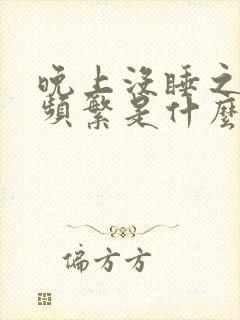 晚上没睡之
频繁是什麼
偏方方